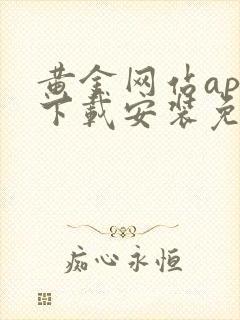 黄金网站ap
下载安装免
痴心永恒